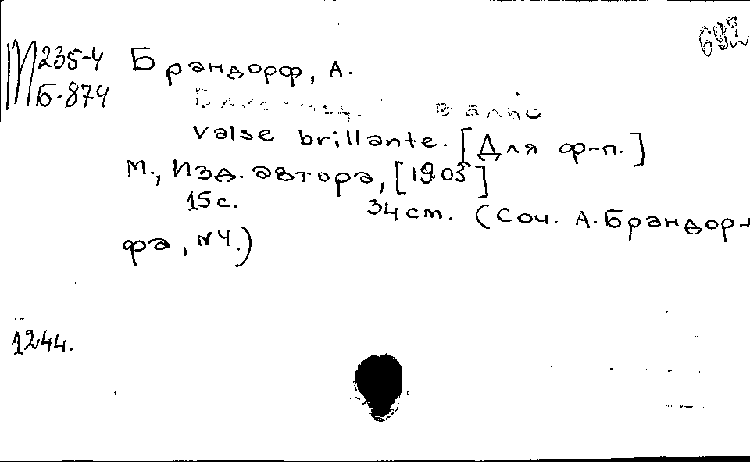 692
М 235-4 Брандорф, А.
Б-874
Valse brillante. [Для ф-п.]
М., Изд. автора, [1903]
15 с. 34 cm. (Соч. А. Брандор-
фа, №4.)
1244.